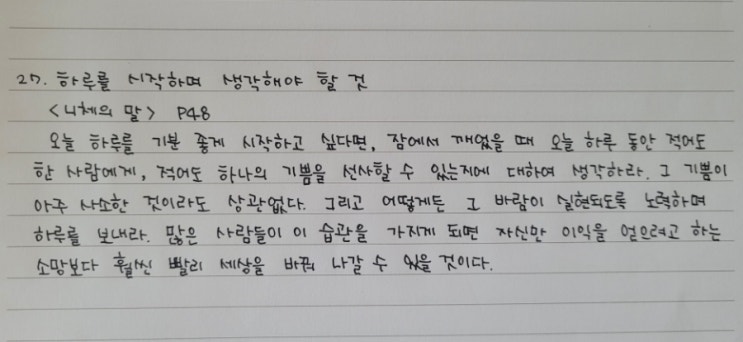 27. 하루를 시작하며 생각해야 할 것
<니체의 말> P48
오늘 하루를 기분 좋게 시작하고 싶다면, 잠에서 깨었을 때 오늘 하루 동안 적어도
한 사람에게, 적어도 하나의 기쁨을 선사할 수 있는지에 대하여 생각하라. 그 기쁨이
아주 사소한 것이라도 상관없다. 그리고 어떻게든 그 바람이 실현되도록 노력하며
하루를 보내라. 많은 사람들이 이 습관을 가지게 되면 자신만 이익을 얻으려고 하는
소망보다 훨씬 빨리 세상을 바꿔 나갈 수 있을 것이다.